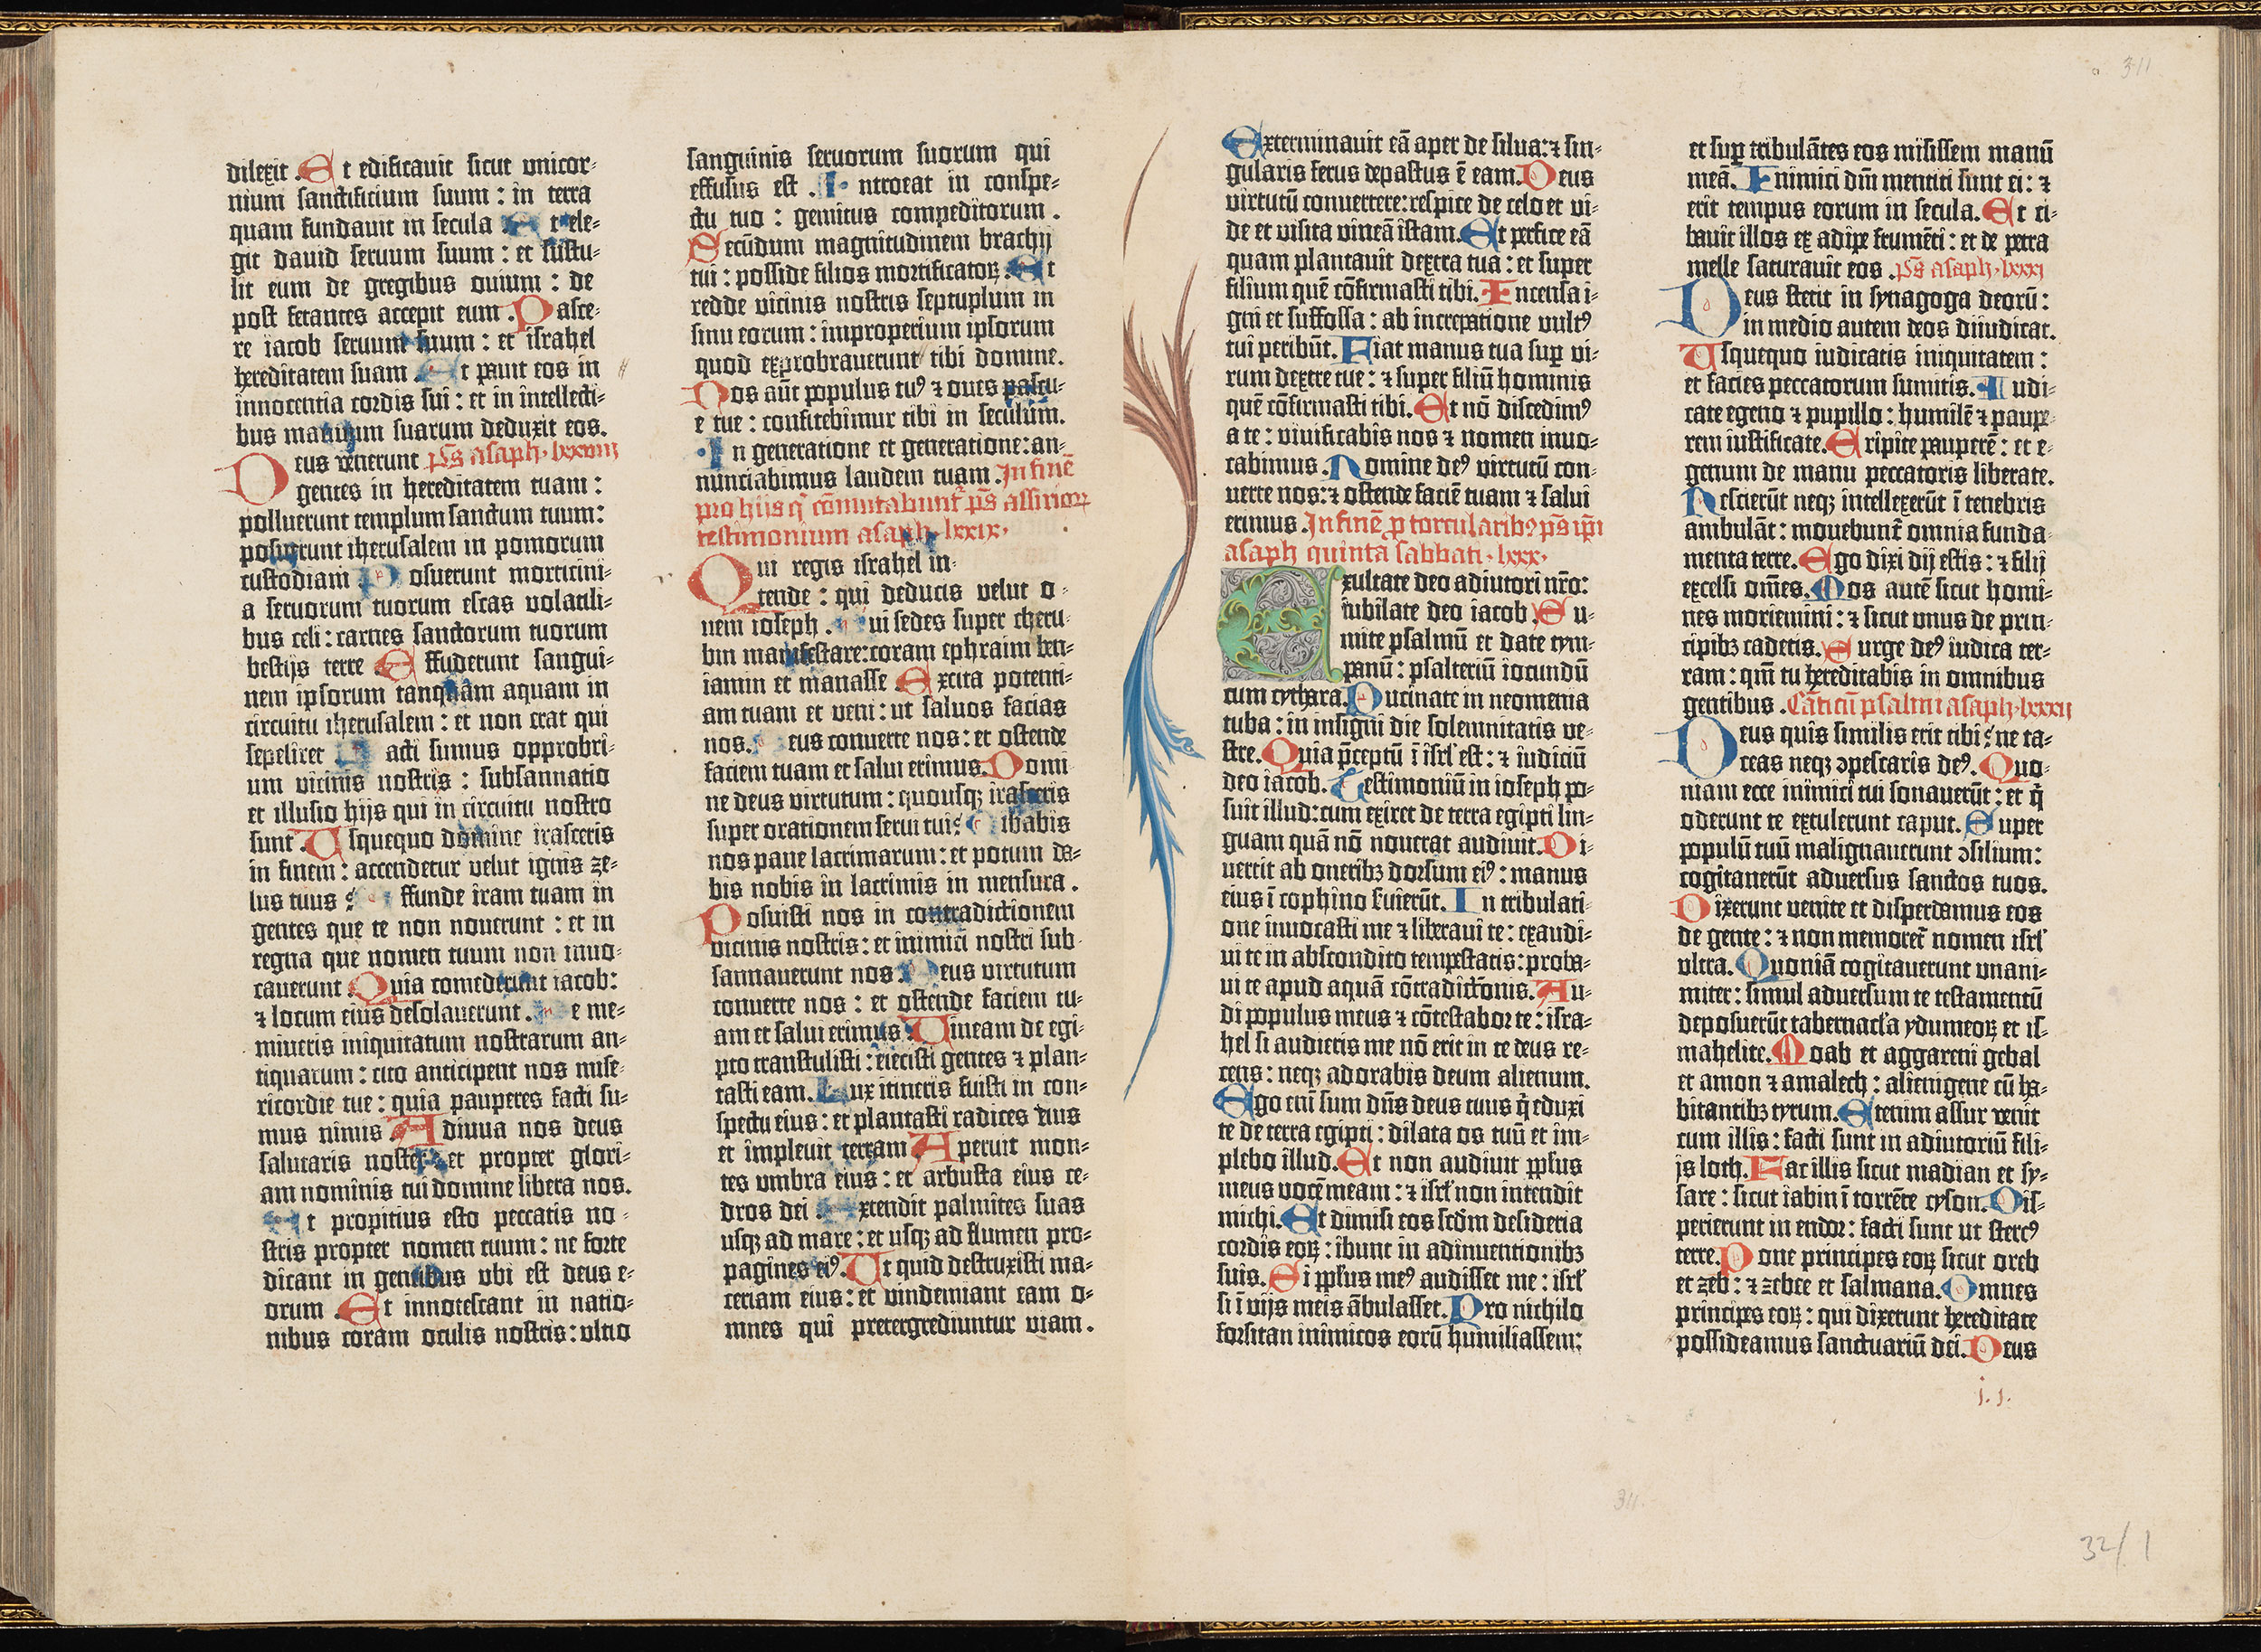 dilexit . Et edificauit sicut vnicor-
nium sanctificium suum : in terra
quam fundauit in secula . Et ele-
git dauid seruum suum : et sustu-
lit eum de gregibus ouium : de
post fetantes accepit eum . Pasce-
re iacob seruum suum : et israhel
hereditatem suam . Et pauit eos in
innocentia cordis sui : et in intellecti-
bus manuum suarum deduxit eos.
Deus venerunt ps̃ asaph · lxxviii
gentes in hereditatem tuam :
polluerunt templum sanctum tuum:
posuerunt iherusalem in pomorum
custodiam . Posuerunt morticini-
a seruorum tuorum escas volatili-
bus celi : carnes sanctorum tuorum
bestijs terre . Effuderunt sangui-
nem ipsorum tanquam aquam in
circuitu iherusalem : et non erat qui
sepeliret . Facti sumus opprobri-
um vicinis nostris : subsannatio
et illusio hijs qui in circuitu nostro
sunt . Usquequo domine irasceris
in finem : accendetur velut ignis ze-
lus tuus ? Effunde iram tuam in
gentes que te non nouerunt : et in
regna que nomen tuum non inuo-
cauerunt . Quia comederunt iacob:
⁊ locum eius desolauerunt . Ne me-
mineris iniquitatum nostrarum an-
tiquarum : cito anticipent nos mise-
ricordie tue : quia pauperes facti su-
mus nimis . Adiuua nos deus
salutaris noster : et propter glori-
am nominis tui domine libera nos.
Et propitius esto peccatis no-
stris propter nomen tuum : ne forte
dicant in gentibus vbi est deus e-
orum . Et innotescant in natio-
nibus coram oculis nostris : vltio
sanguinis seruorum suorum qui
effusus est . Introeat in conspe-
ctu tuo : gemitus compeditorum .
Secūdum magnitudinem brachij
tui : posside filios mortificatoꝝ . Et
redde vicinis nostris septuplum in
sinu eorum : improperium ipsorum
quod exprobrauerunt tibi domine.
Nos aūt populus tuꝰ ⁊ oues pascu-
e tue : confitebimur tibi in seculum.
In generatione et generatione : an-
nunciabimus laudem tuam . In finē
pro hijs q̄ cōmutabunt᷑ ps̃ assirioꝝ
testimonium asaph · lxxix ·
Qui regis israhel in-
tende : qui deducis velut o-
uem ioseph . Qui sedes super cheru-
bin manifestare : coram ephraim ben-
iamin et manasse . Excita potenti-
am tuam et veni : ut saluos facias
nos . Deus conuerte nos : et ostende
faciem tuam et salui erimus. Domi-
ne deus virtutum : quousqꝫ irasceris
super orationem serui tui ? Cibabis
nos pane lacrimarum : et potum da-
bis nobis in lacrimis in mensura .
Posuisti nos in contradictionem
vicinis nostris : et inimici nostri sub-
sannauerunt nos . Deus virtutum
conuerte nos : et ostende faciem tu-
am et salui erimus . Uineam de egi-
pto transtulisti : eiecisti gentes ⁊ plan-
tasti eam. Dux itineris fuisti in con-
spectu eius : et plantasti radices eius
et impleuit terram . Aperuit mon-
tes vmbra eius : et arbusta eius ce-
dros dei . Extendit palmites suas
usqꝫ ad mare : et usqꝫ ad flumen pro-
pagines eiꝰ. Ut quid destruxisti ma-
ceriam eius : et vindemiant eam o-
mnes qui pretergrediuntur viam .
311
Exterminauit eā aper de silua : ⁊ sin-
gularis ferus depastus ē eam. Deus
virtutū conuertere : respice de celo et vi-
de et visita vineā istam. Et perfice eā
quam plantauit dextra tua : et super
filium quē cōfirmasti tibi. Incensa i-
gni et suffossa : ab increpatione vultꝰ
tui peribūt. Fiat manus tua suꝑ vi-
rum dextre tue : ⁊ super filiū hominis
quē cōfirmasti tibi. Et nō discedimꝰ
a te : viuificabis nos ⁊ nomen tuum inuo-
cabimus . Domine deꝰ virtutū con-
uerte nos : ⁊ ostende faciē tuam ⁊ salui
erimus . In finē ꝑ torcularibꝰ ps̃ ip̄i
asaph quinta sabbati · lxxx ·
Exultate deo adiutori nr̄o:
iubilate deo iacob. Su-
mite psalmū et date tym-
panū : psalteriū iocundū
cum cythara. Bucinate in neomenia
tuba : in insigni die solemnitatis ve-
stre. Quia p̄ceptū ī isrl̄ est : ⁊ iudiciū
deo iacob. Testimoniū in ioseph po-
suit illud : cum exiret de terra egipti lin-
guam quā nō nouerat audiuit. Di-
uertit ab oneribꝫ dorsum eiꝰ : manus
eius ī cophino seruierūt. In tribulati-
one inuocasti me ⁊ liberaui te : exaudi-
ui te in abscondito tempestatis : proba-
ui te apud aquā cōtradictōnis. Au-
di populus meus ⁊ cōtestabor te : isra-
hel si audieris me nō erit in te deus re-
cens : neqꝫ adorabis deum alienum.
Ego enī sum dn̄s deus tuus q̄ eduxi
te de terra egipti : dilata os tuū et im-
plebo illud. Et non audiuit ppl̄us
meus vocē meam : ⁊ isrl̄ non intendit
michi. Et dimisi eos scd̄m desideria
cordis eoꝝ : ibunt in adinuentionibꝫ
suis. Si ppl̄us meꝰ audisset me : isrl̄
si ī vijs meis ābulasset. Pro nichilo
forsitan inimicos eorū humiliassem:
et suꝑ tribulātes eos misissem manū
meā. Inimici dn̄i mentiti sunt ei : ⁊
erit tempus eorum in secula. Et ci-
bauit illos ex adipe frumēti : et de petra
melle saturauit eos . ps̃ asaph · lxxxi
Deus stetit in synagoga deorū :
in medio autem deos diiudicat.
Usquequo iudicatis iniquitatem :
et facies peccatorum sumitis. Iudi-
cate egeno ⁊ pupillo : humilē ⁊ paupe-
rem iustificate. Eripite pauperē : et e-
genum de manu peccatoris liberate.
Nescierūt neqꝫ intellexerūt ī tenebris
ambulāt : mouebunt᷑ omnia funda-
menta terre. Ego dixi dij estis : ⁊ filij
excelsi om̄es. Uos autē sicut homi-
nes moriemini : ⁊ sicut vnus de prin-
cipibꝫ cadetis. Surge deꝰ iudica ter-
ram : qm̄ tu hereditabis in omnibus
gentibus . Cāticū psalmi asaph · lxxxii
Deus quis similis erit tibi ? ne ta-
ceas neqꝫ ꝯpescaris deꝰ. Quo-
niam ecce inimici tui sonauerūt : et q̄
oderunt te extulerunt caput. Super
populū tuū malignauerunt ꝯsilium:
cogitauerūt aduersus sanctos tuos.
Dixerunt venite et disperdamus eos
de gente : ⁊ non memoret᷑ nomen isrl̄
vltra. Quoniā cogitauerunt vnani-
miter : simul aduersum te testamentū
deposuerūt tabernacl̄a ydumeoꝝ et is-
mahelite. Moab et aggareni gebal
et amon ⁊ amalech : alienigene cū ha-
bitantibꝫ tyrum. Etenim assur venit
cum illis : facti sunt in adiutoriū fili-
is loth. Fac illis sicut madian et sy-
sare : sicut iabin ī torrēte cyson. Dis-
perierunt in endor : facti sunt ut stercꝰ
terre. Pone principes eoꝝ sicut oreb
et zeb : ⁊ zebee et salmana. Omnes
principes eoꝝ : qui dixerunt hereditate
possideamus sanctuariū dei. Deus
j. j.
311.
32/1